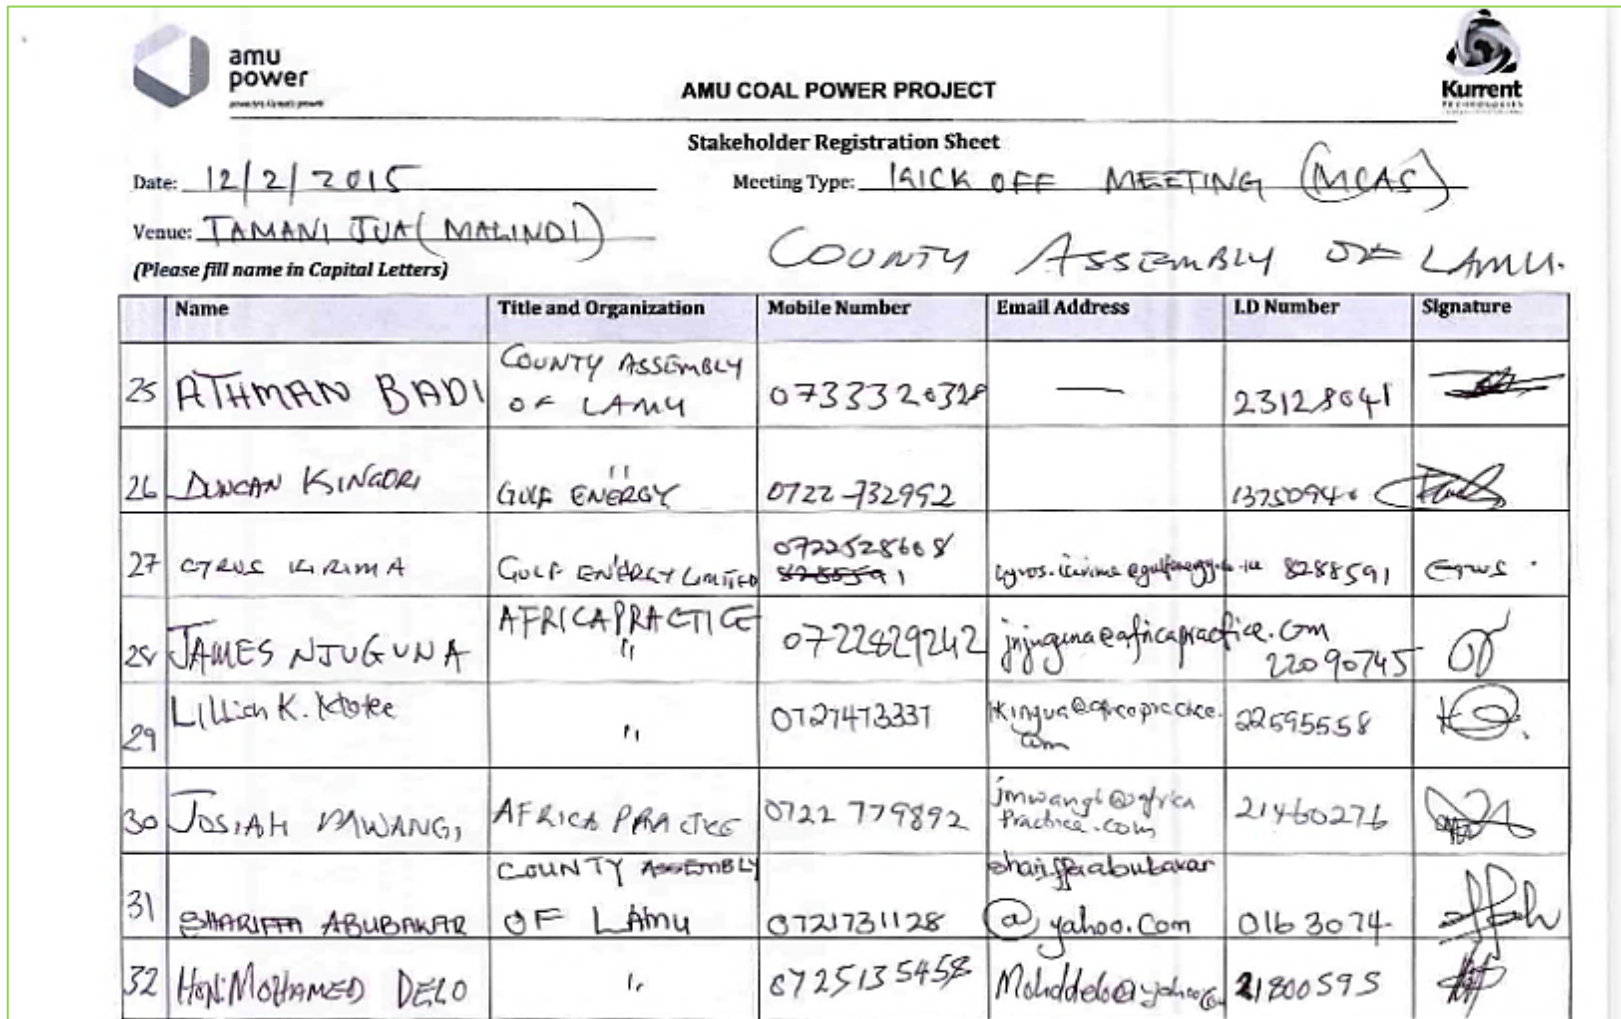 amu
power
AMU COAL POWER PROJECT
Kurrent
TECHNOLOGIES
Stakeholder Registration Sheet
Date: 12/2/2015 Meeting Type: KICK OFF MEETING (MCAS)
Venue: TAMANI JUA (MALINDI)
COUNTY ASSEMBLY OF LAMU.
(Please fill name in Capital Letters)
Name Title and Organization Mobile Number Email Address I.D Number Signature
25 ATHMAN BADI COUNTY ASSEMBLY OF LAMU 0733320328 — 23128041
26 DUNCAN KINGORI GULF ENERGY 0722-732992
27 CYRUS KIRIMA GULF ENERGY LIMITED 0722528608 8288591 Cyrus
28 JAMES NJUGUNA AFRICAPRACTICE " 0722829242 jnjuguna@africapractice.com 22090745
29 Lillian K. " 0727473337 lkingua@africapractice.com 22595558
30 JOSIAH MWANGI AFRICA PRACTICE 0722 779892 jmwangi@africapractice.com 21460276
31 SHARIFFA ABUBAKAR COUNTY ASSEMBLY OF LAMU 0721731128 shariffaabubakar@yahoo.com 0163074
32 HON. MOHAMED DELO " 0725135458 Mohddelo@yahoo.com 21800595